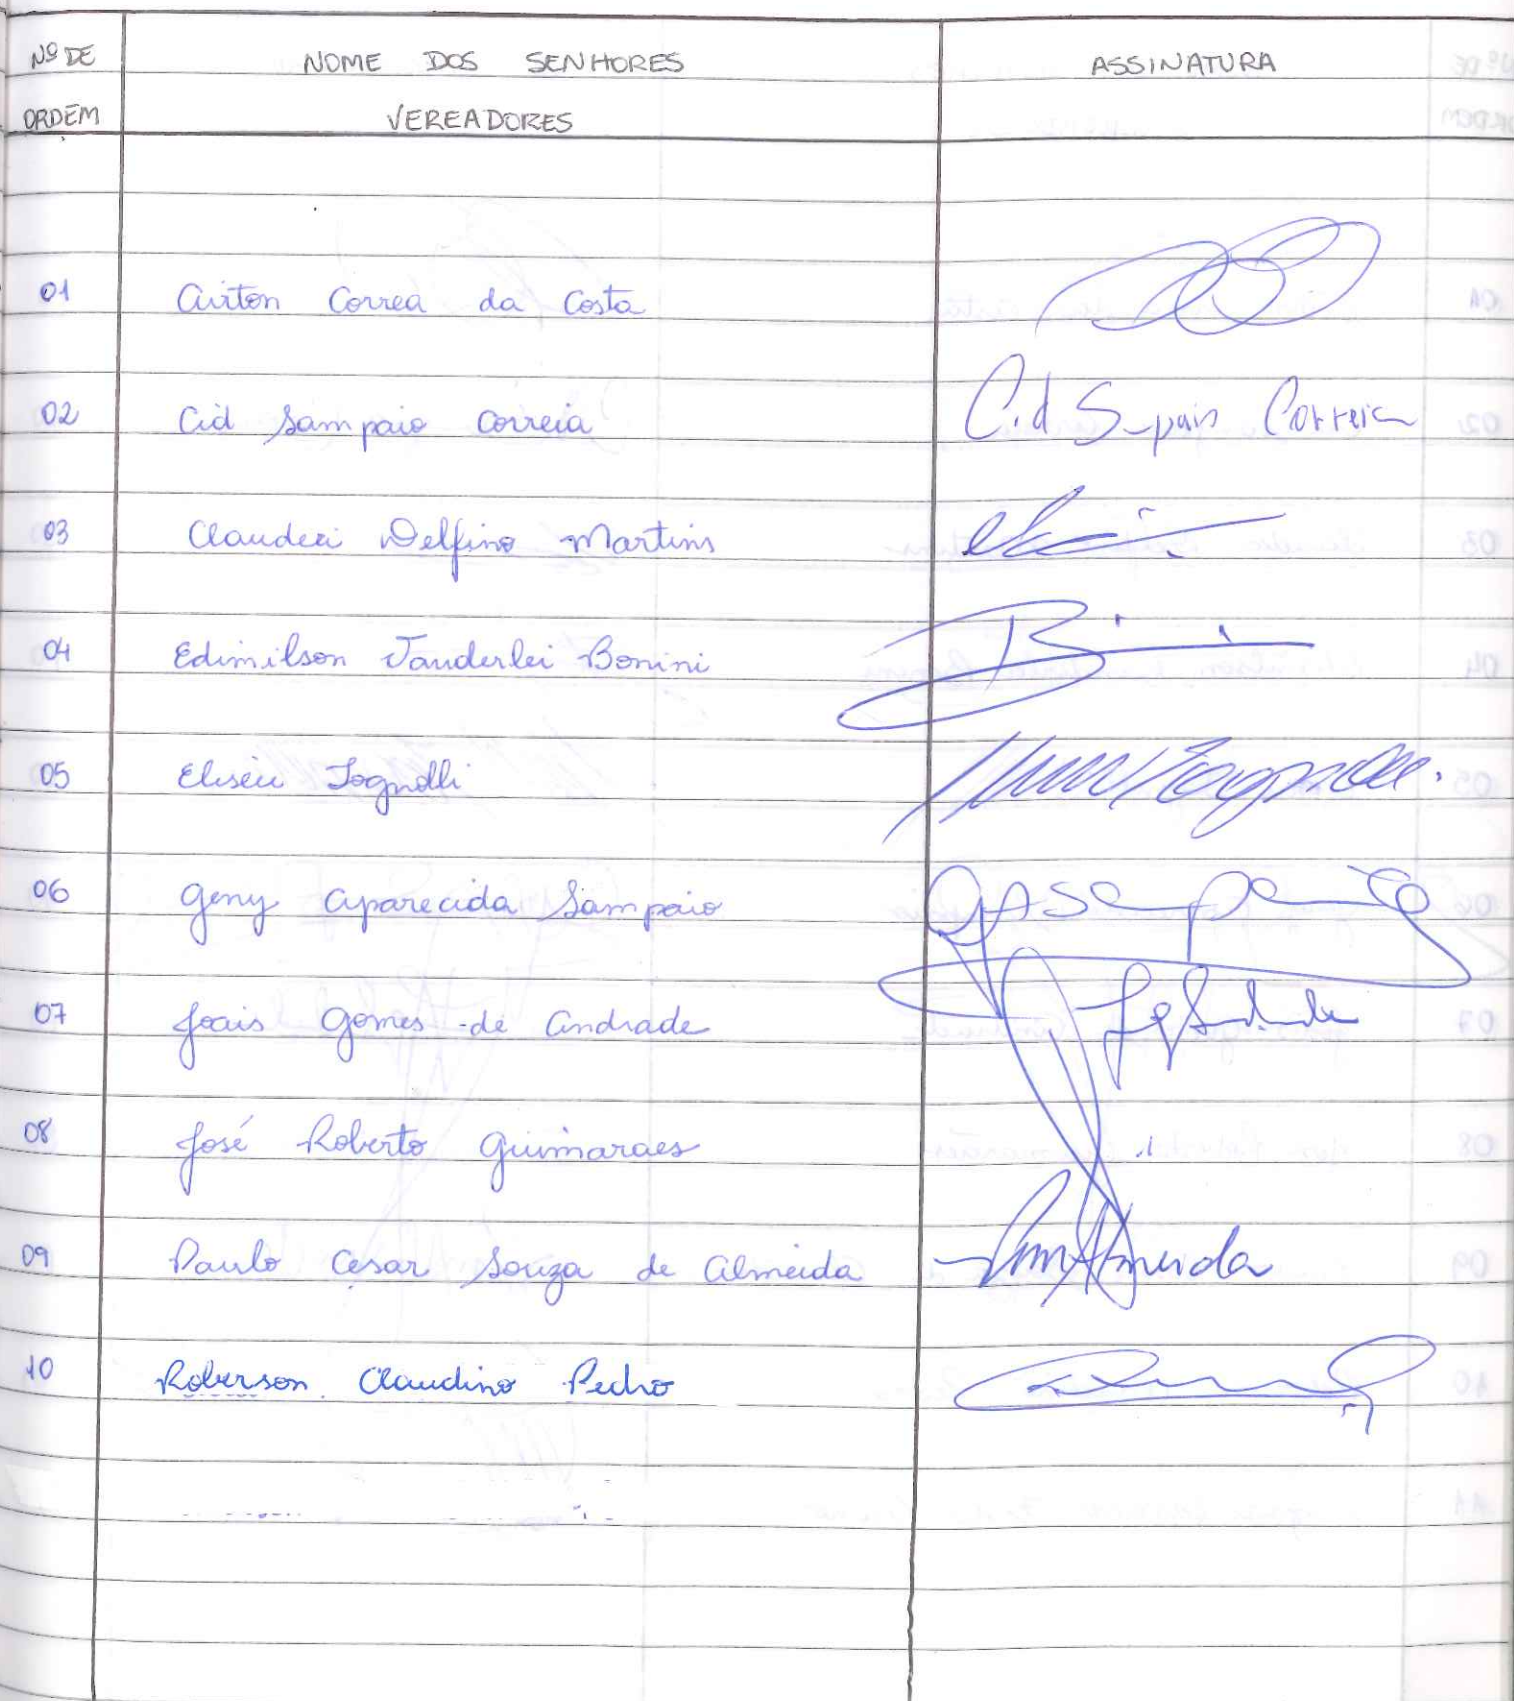 Nº DE NOME DOS SENHORES ASSINATURA
ORDEM VEREADORES
01 Airton Correa da Costa
02 Cid Sampaio Correia Cid Sampaio Correia
03 Clauderi Delfino Martins
04 Edimilson Vanderlei Bonini
05 Eliseu Tognolli
06 Geny Aparecida Sampaio
07 Joais Gomes de Andrade
08 José Roberto Guimaraes
09 Paulo Cesar Souza de Almeida Almeida
10 Roberson Claudino Pedro